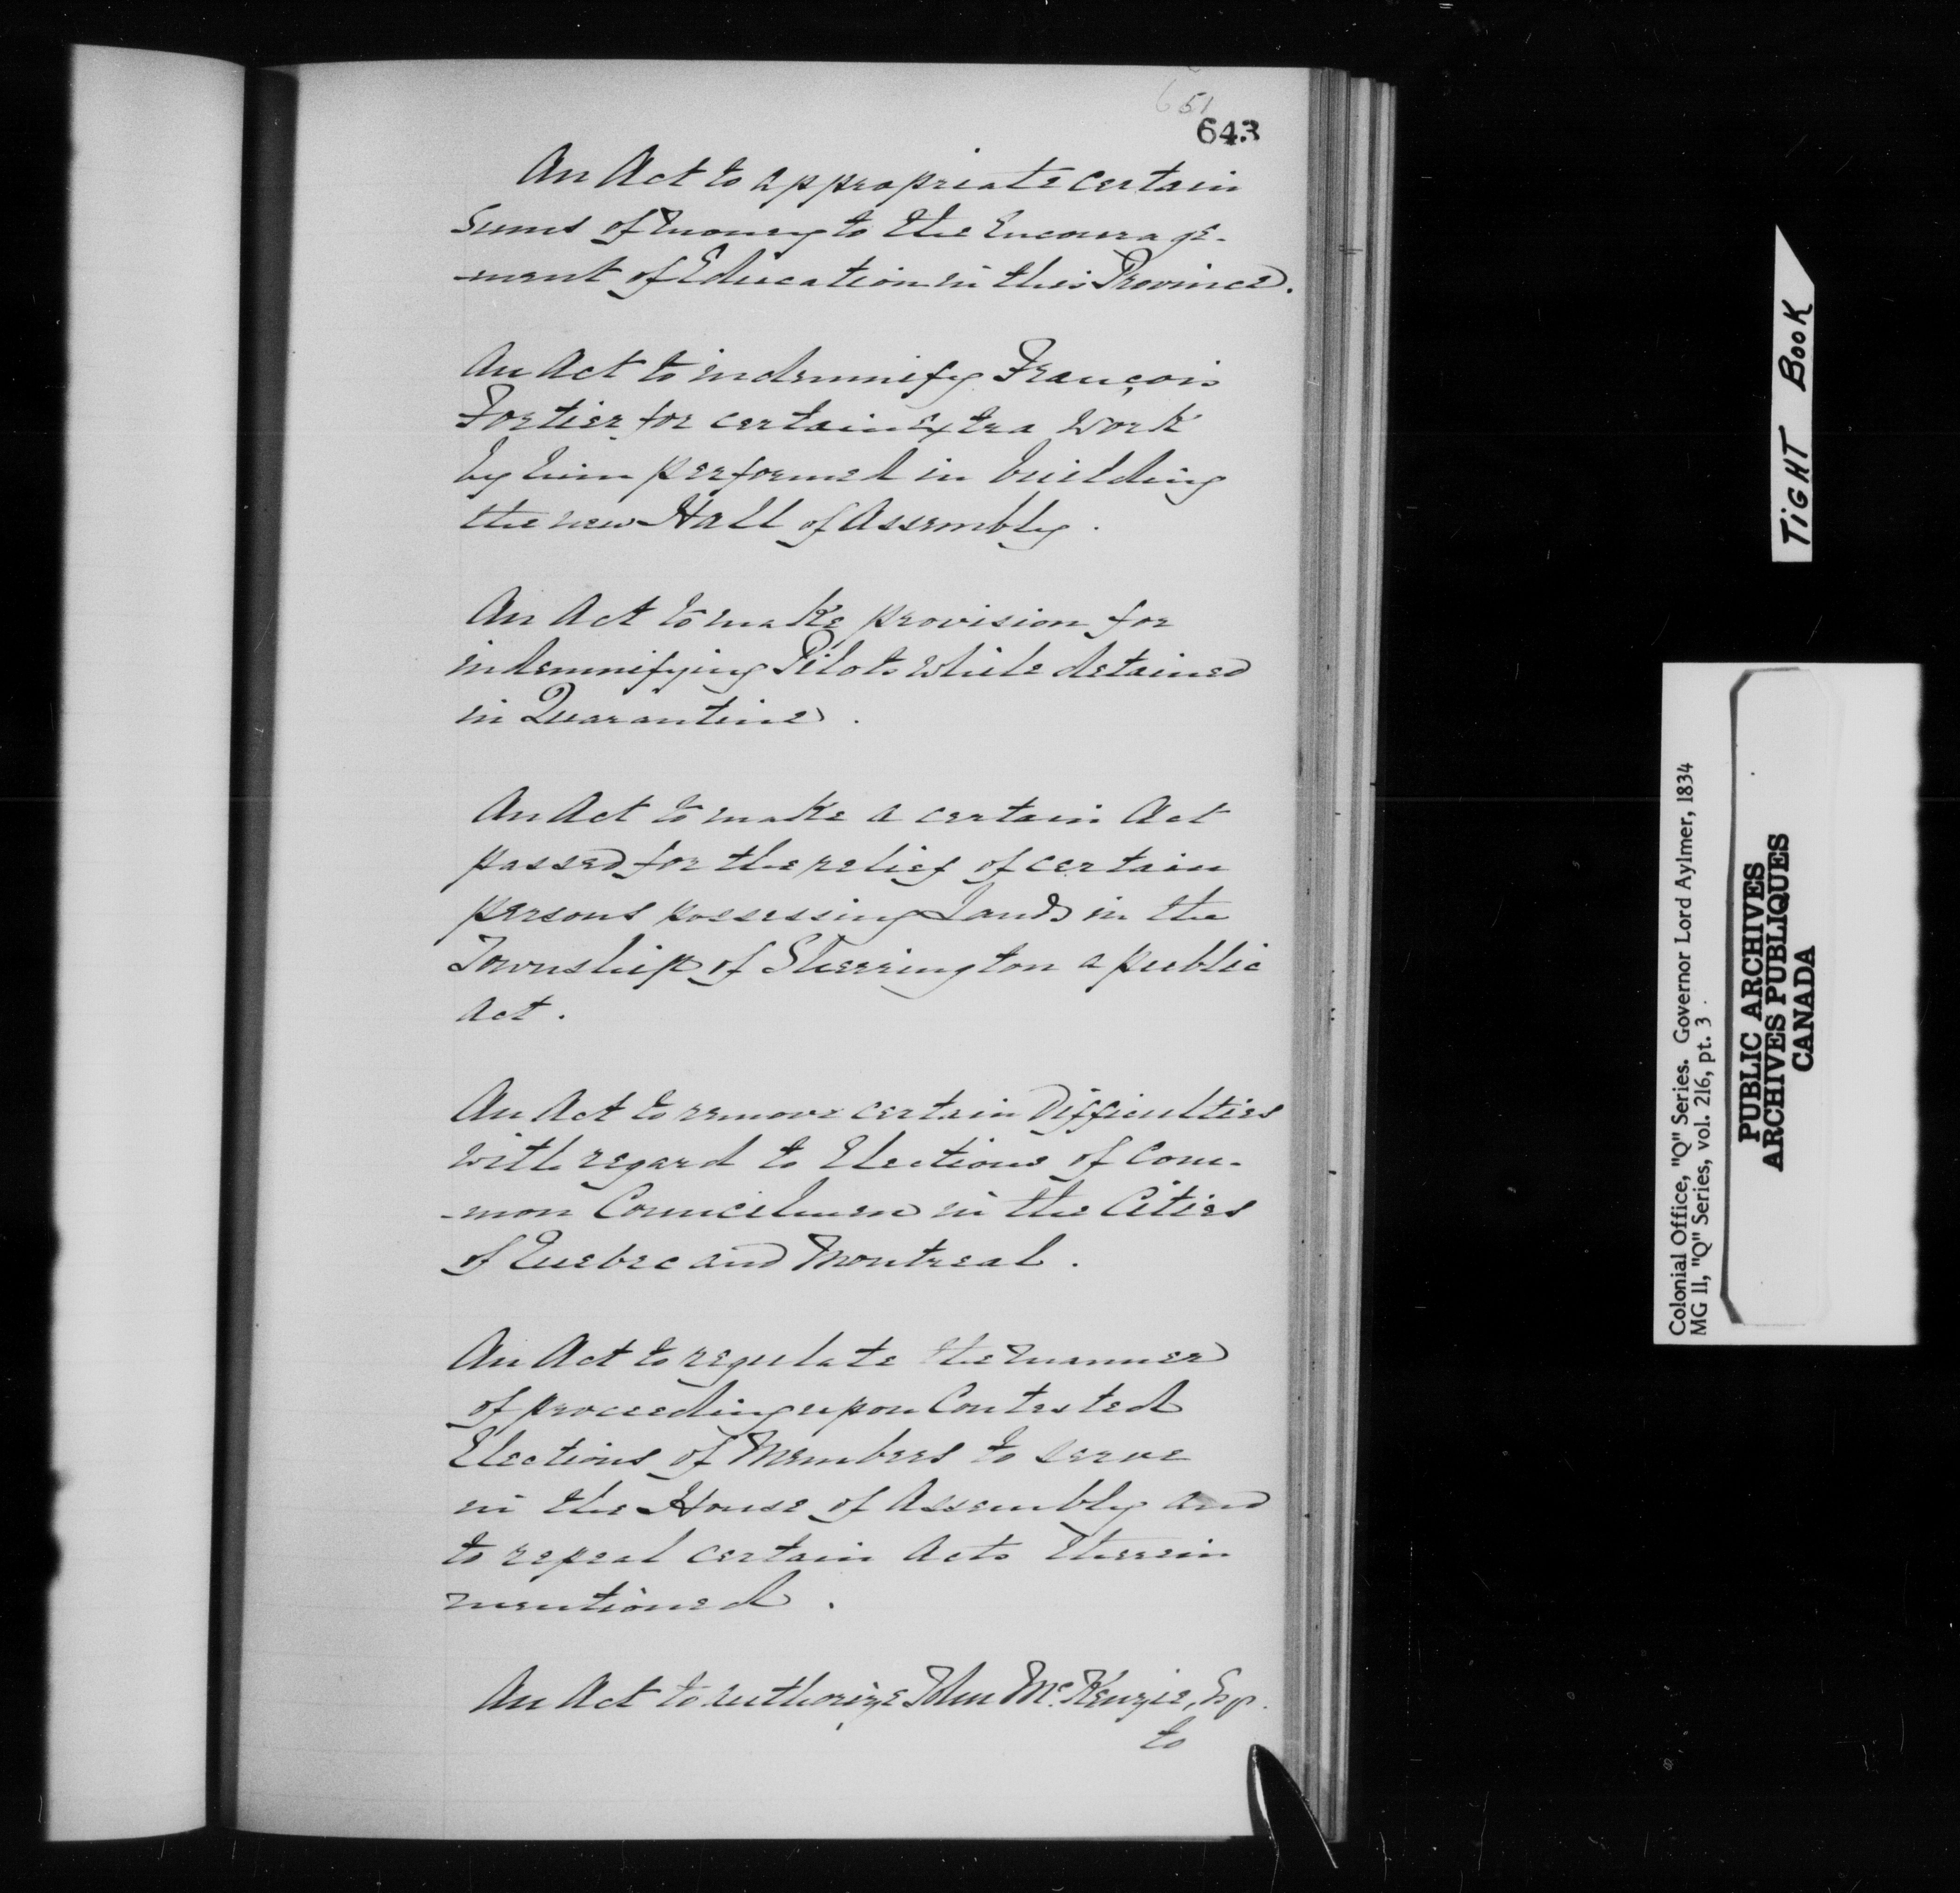 651
643
An Act to appropriate certain
Sums of Money to the Encourage-
-ment of Education in this Province.
An Act to indemnify François
Fortier for certain Extra Work
by him performed in building
the new Hall of Assembly.
An Act to make provision for
indemnifying Pilots while detained
in Quarantine.
An Act to make a certain Act
passed for the relief of certain
persons possessing Lands in the
Township of Sherrington a public
Act.
An Act to remove certain Difficulties
with regard to Elections of Com-
-mon Councilmen in the Cities
of Quebec and Montreal.
An Act to regulate the manner
of proceeding upon Contested
Elections of Members to serve
in the House of Assembly and
to repeal certain Acts therein
mentioned.
An Act to authorize John McKenzie, Esqr.
to
TIGHT BOOK
Colonial Office, "Q" Series. Governor Lord Aylmer, 1834
MG 11, "Q" Series, vol. 216, pt. 3
PUBLIC ARCHIVES
ARCHIVES PUBLIQUES
CANADA